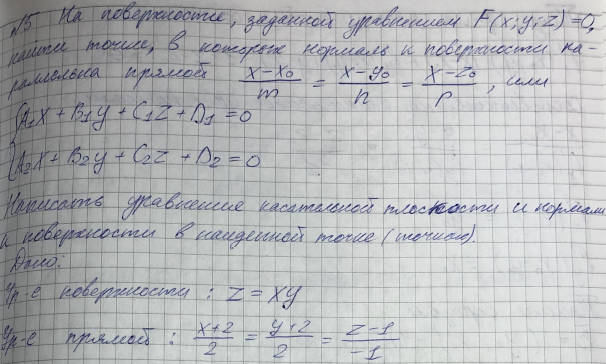 №5 На поверхностие, заданной уравнением F(x;y;z)=0,
найти точие, в которых нормаль к поверхности па-
раллельна прямой (x-x₀)/m = (x-y₀)/n = (x-z₀)/p, или
{A₁x + B₁y + C₁z + D₁ = 0
{A₂x + B₂y + C₂z + D₂ = 0
Написать уравнение касательной плоскости и нормали
к поверхности в найденной точке (точках).
Дано:
Ур-е поверхности : z = xy
Ур-е прямой : (x+2)/2 = (y+2)/2 = (z-1)/-1